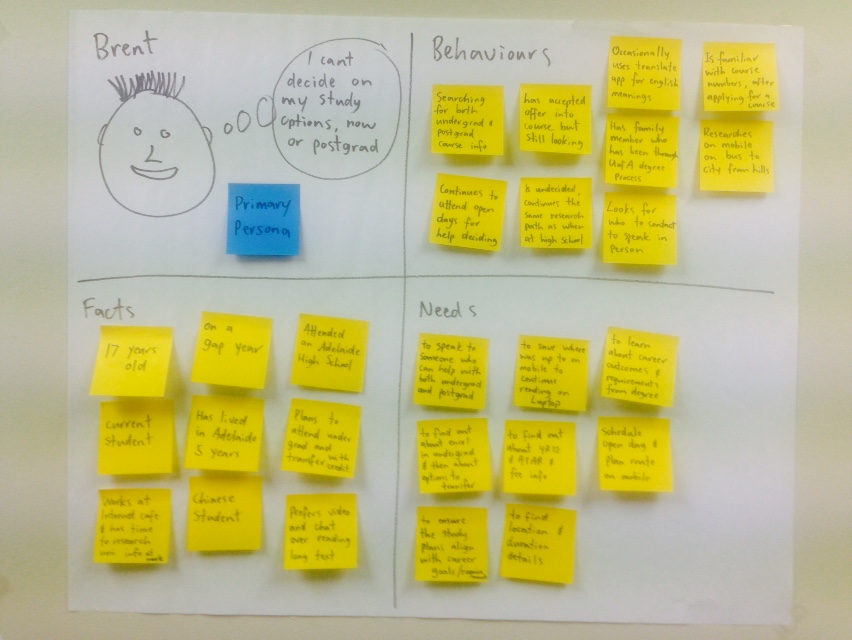 Brent
I cant
decide on
my study
options, now
or postgrad
Primary
Persona
Behaviours
Searching
for both
undergrad &
postgrad
course info
has accepted
offer into
course but
still looking
Occasionally
uses translate
app for english
meanings
Is familiar
with course
numbers, after
applying for a
course
Has family
member who
has been through
UofA degree
process
Researches
on mobile
on bus to
city from hills
Continues to
attend open
days for
help deciding
Is undecided,
continues the
same research
path as when
at high school
Looks for
who to contact
to speak in
person
Facts
17 years
old
on a
gap year
Attended
an Adelaide
High School
current
student
Has lived
in Adelaide
5 years
Plans to
attend under
grad and
transfer with
credit
Works at
Internet cafe
& has time
to research
uni info at
work
Chinese
Student
Prefers video
and chat
over reading
long text
Needs
to speak to
someone who
can help with
both undergrad
and postgrad
to save where
was up to on
mobile to
continue
reading on
Laptop
to learn
about career
outcomes &
requirements
from degree
to find out
about enrol
in undergrad
& then about
options to
transfer
to find out
about
& ATAR &
fee info
Schedule
open day &
plan route
on mobile
to ensure
the study
plans align
with career
goals/
to find
location &
duration
details